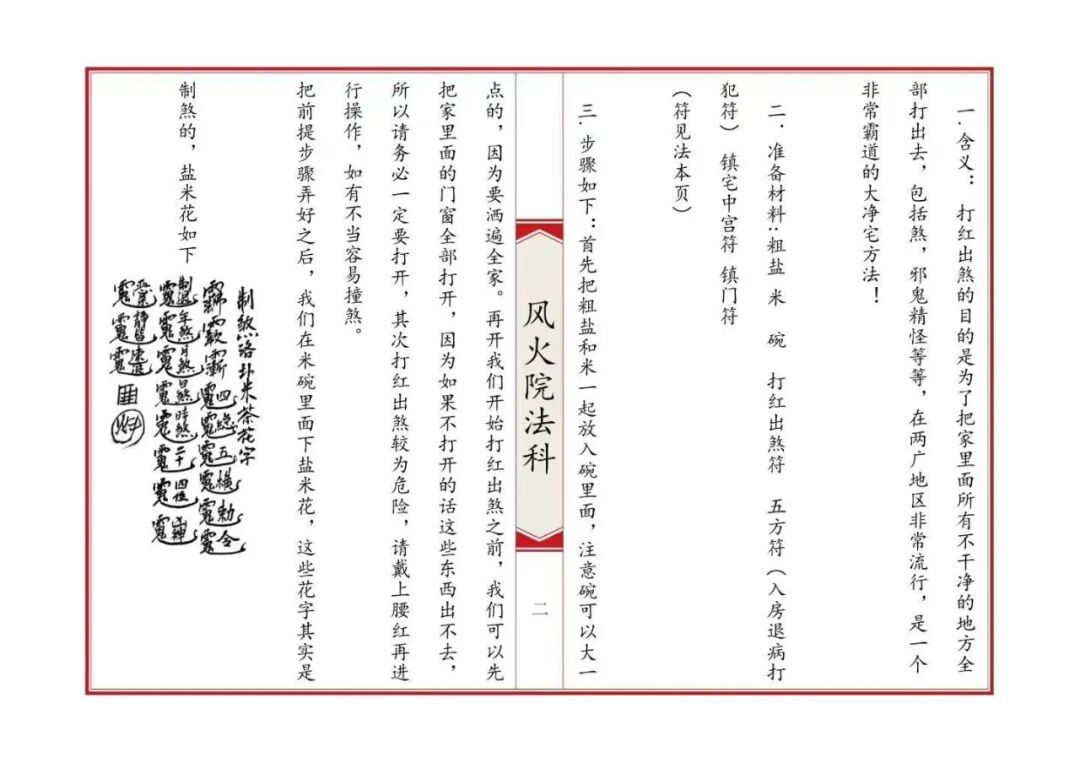 一.含义：打红出煞的目的是为了把家里面所有不干净的地方全
部打出去，包括煞，邪鬼精怪等等，在两广地区非常流行，是一个
非常霸道的大净宅方法！
二.准备材料:粗盐 米 碗 打红出煞符 五方符（入房退病打
犯符） 镇宅中宫符 镇门符
（符见法本页）
三.步骤如下：首先把粗盐和米一起放入碗里面，注意碗可以大一
风火院法科
二
点的，因为要洒遍全家。再开我们开始打红出煞之前，我们可以先
把家里面的门窗全部打开，因为如果不打开的话这些东西出不去，
所以请务必一定要打开，其次打红出煞较为危险，请戴上腰红再进
行操作，如有不当容易撞煞。
把前提步骤弄好之后，我们在米碗里面下盐米花，这些花字其实是
制煞的，盐米花如下
米茶花字
四 五横 勅令
制退 年煞 月煞 日煞 时煞 二十四位 神